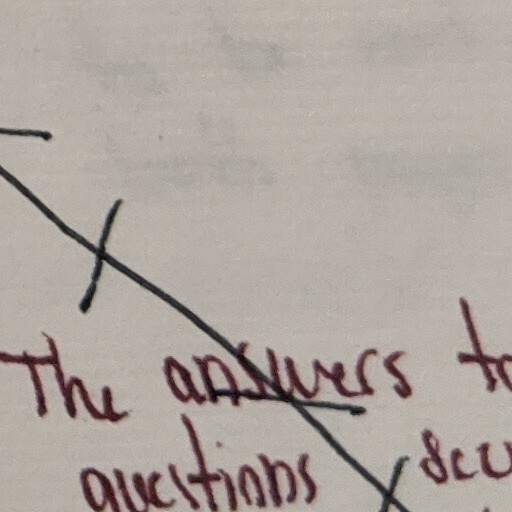 The answers
questions